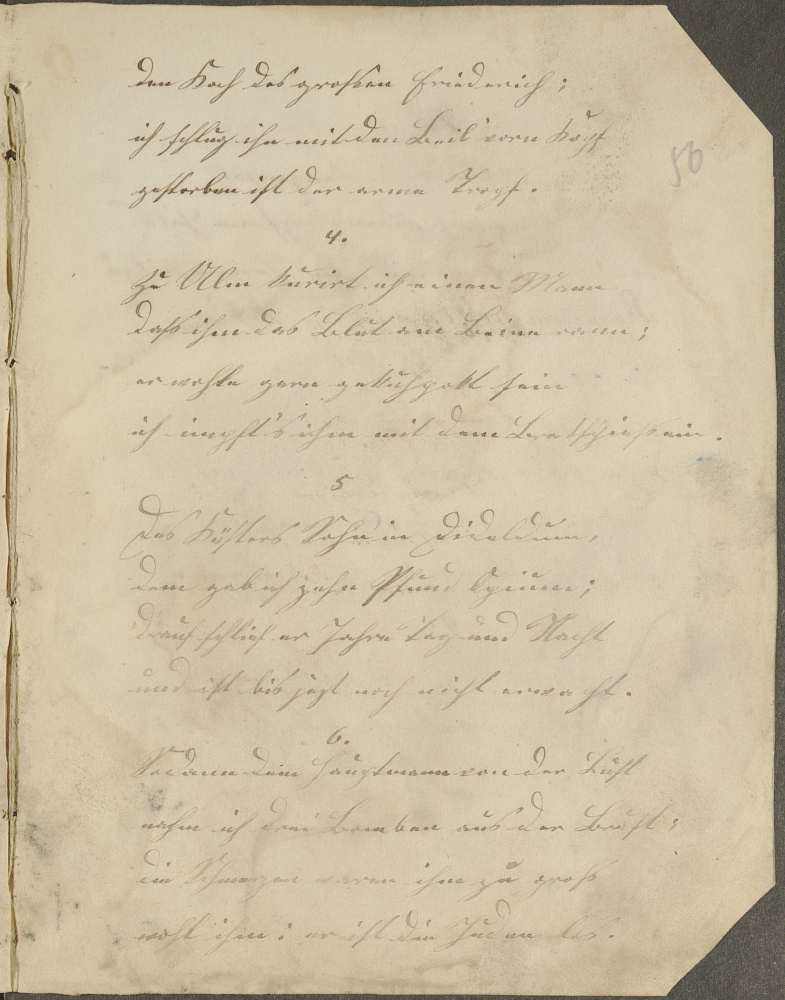 den Koch des großen Friederich;
ich schlug ihn mit den Beil vorn Kopf
gestorben ist der arme Tropf.
56
4.
Zu Ulm kurirt ich einen Mann
daß ihm das Blut am Beine rann;
er wollte gern gekuhpokt sein
ich impft's ihm mit dem Bratspieß ein.
5
Des Küsters Sohn in Dideldum,
dem gab ich zehn Pfund Opium;
drauf schlief er Jahre Tag und Nacht
und ist bis jezt noch nicht erwacht.
6.
Sodann dem Hauptmann von der Lust
nahm ich drei Bomben aus der Brust;
die Schmerzen waren ihm zu groß
wohl ihm: er ist die Juden los.